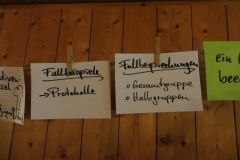 Fallbeispiele
→ Protokolle
Fallbesprechungen
Gesamtgruppe
Halbgruppen
ein